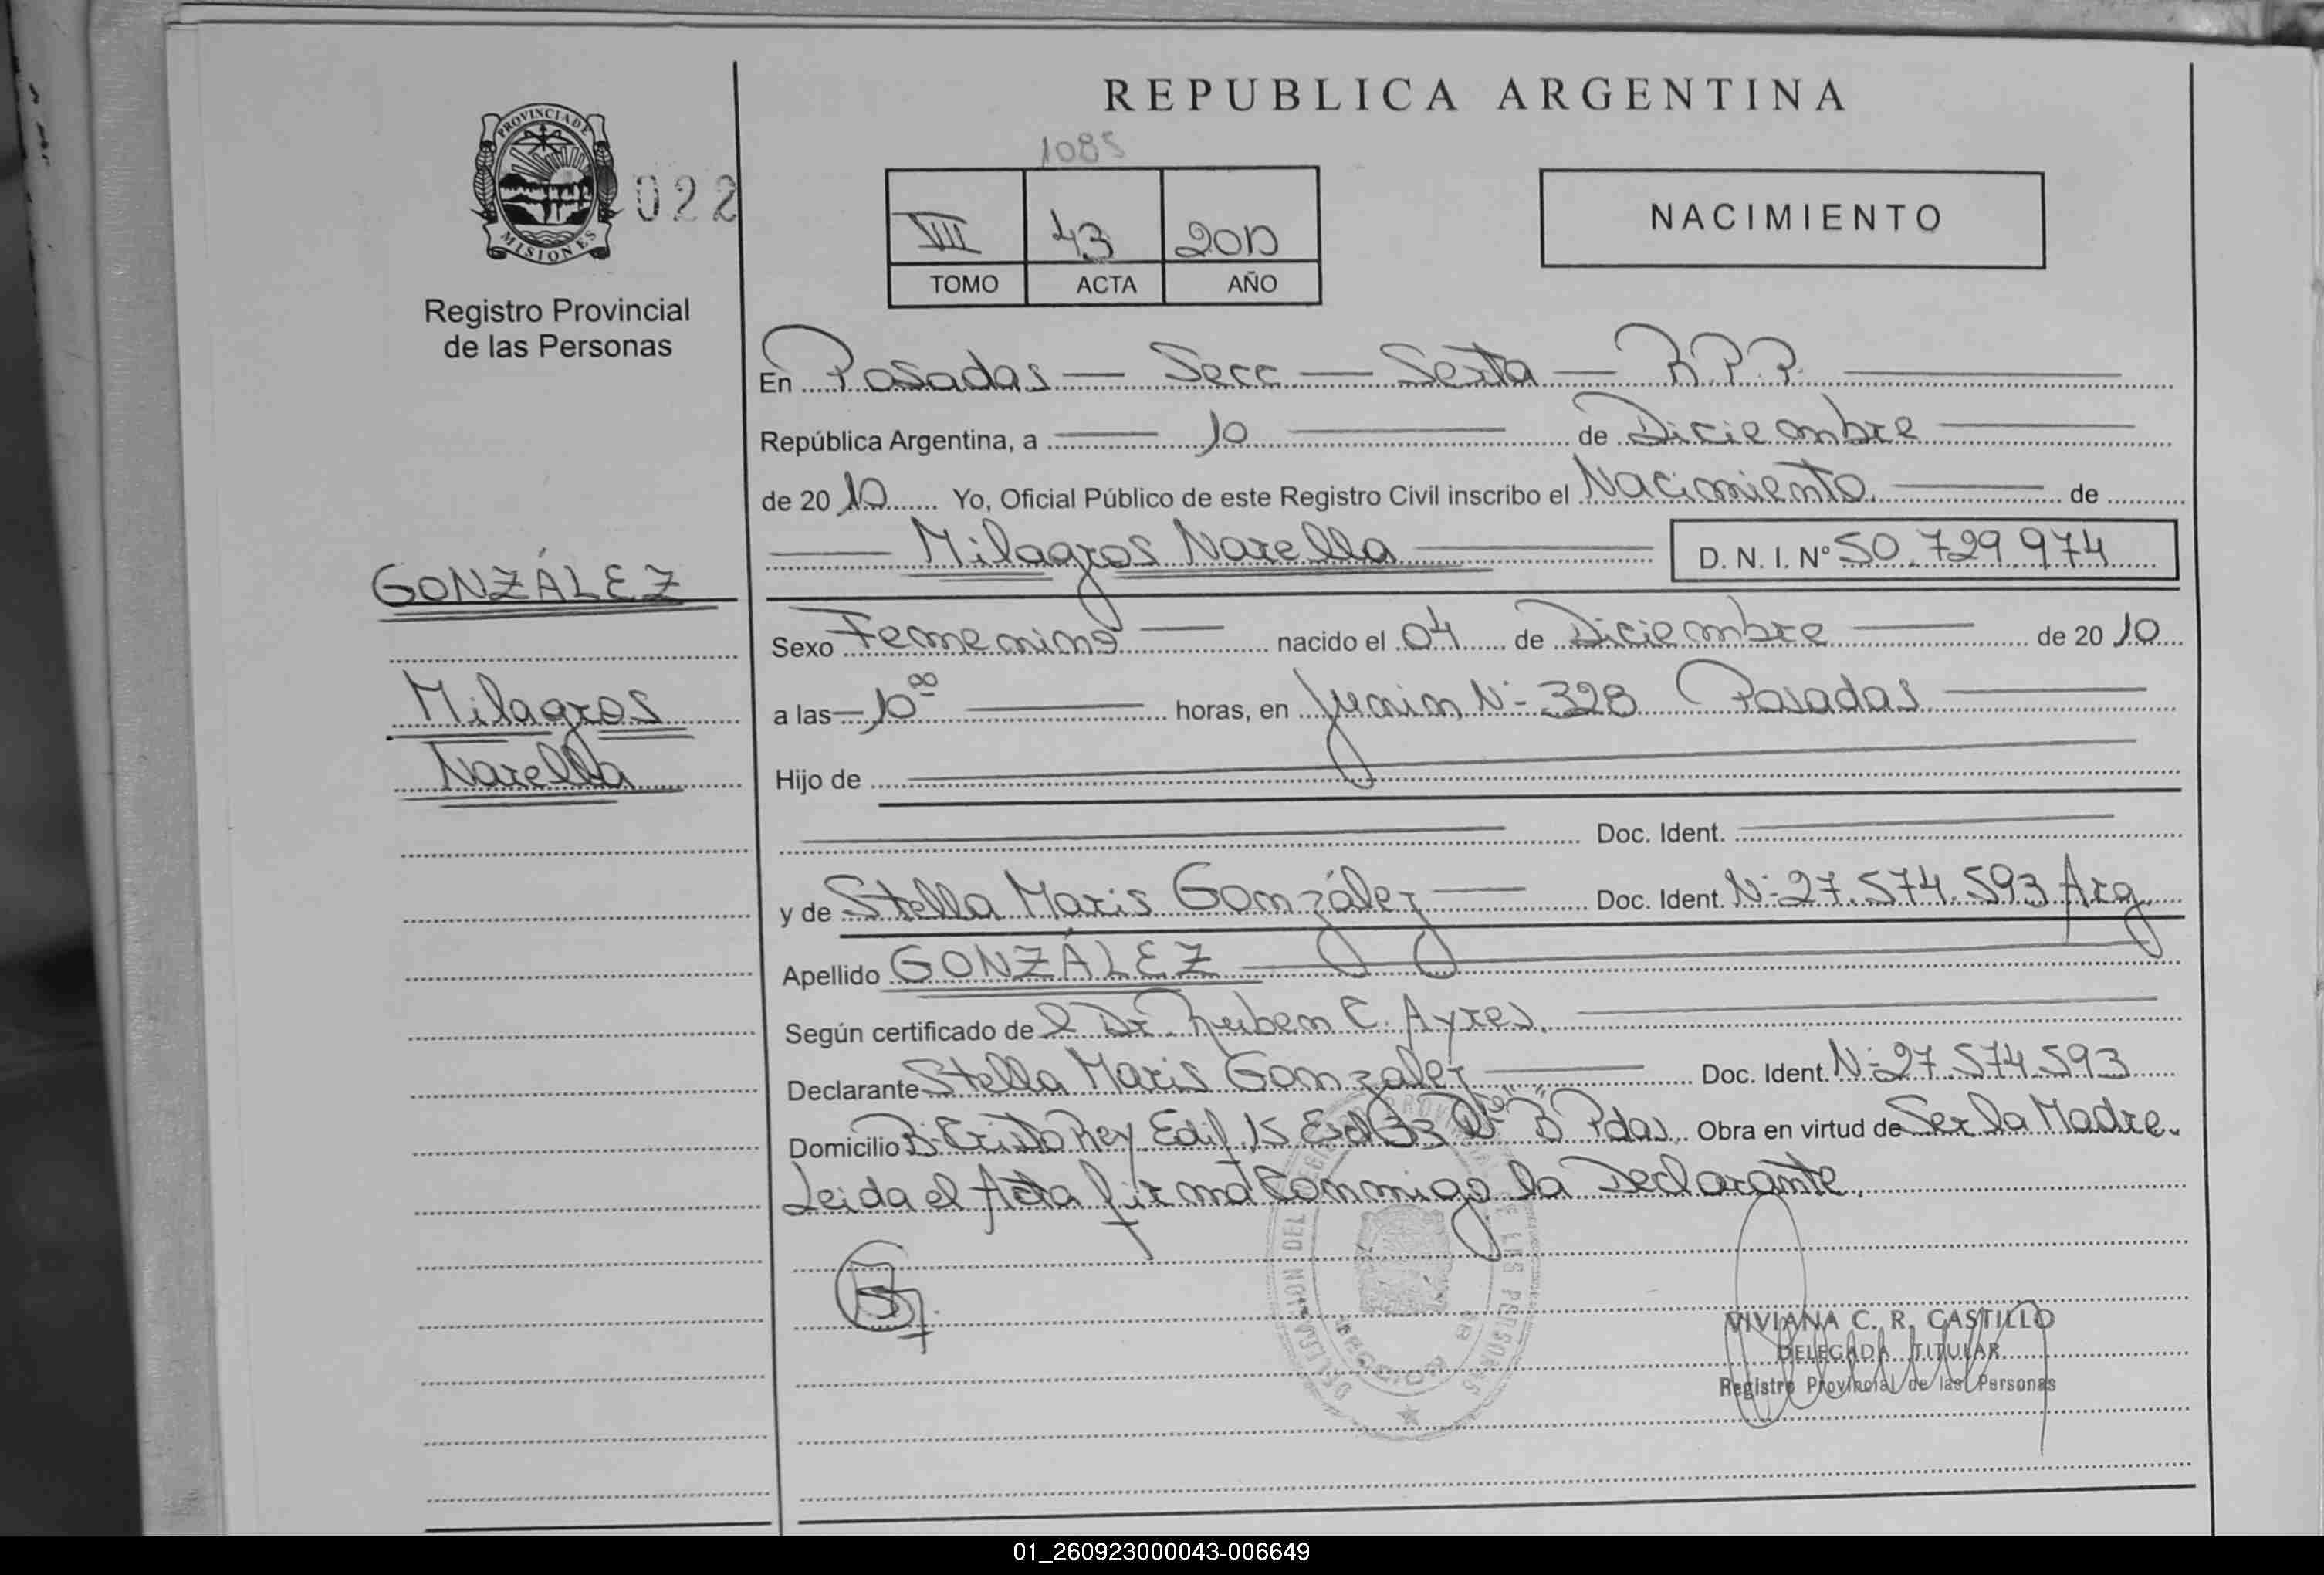 REPUBLICA ARGENTINA
PROVINCIA DE
MISIONES
022
Registro Provincial
de las Personas
1085
VII 43 2010
TOMO ACTA AÑO
NACIMIENTO
En Posadas — Secc — Sexta — R.P.P.
República Argentina, a 10 de Diciembre
de 2010 Yo, Oficial Público de este Registro Civil inscribo el Nacimiento de
Milagros Narella D. N. I. Nº 50.729.974
GONZÁLEZ
Milagros
Narella
Sexo Femenino nacido el 04 de Diciembre de 2010
a las 10 00 horas, en Junin Nº 328 Posadas
Hijo de
Doc. Ident.
y de Stella Maris González Doc. Ident. Nº 27.574.593 Arg
Apellido GONZÁLEZ
Según certificado del Dr. Ruben C. Ayres.
Declarante Stella Maris Gonzalez Doc. Ident. Nº 27.574.593
Domicilio Bº Cristo Rey Edif. 15 Esc 33 "B" Pdas. Obra en virtud de Ser la Madre.
Leida el Acta firma conmigo la Declarante.
VIVIANA C. R. CASTILLO
DELEGADA TITULAR
Registro Provincial de las Personas
01_260923000043-006649